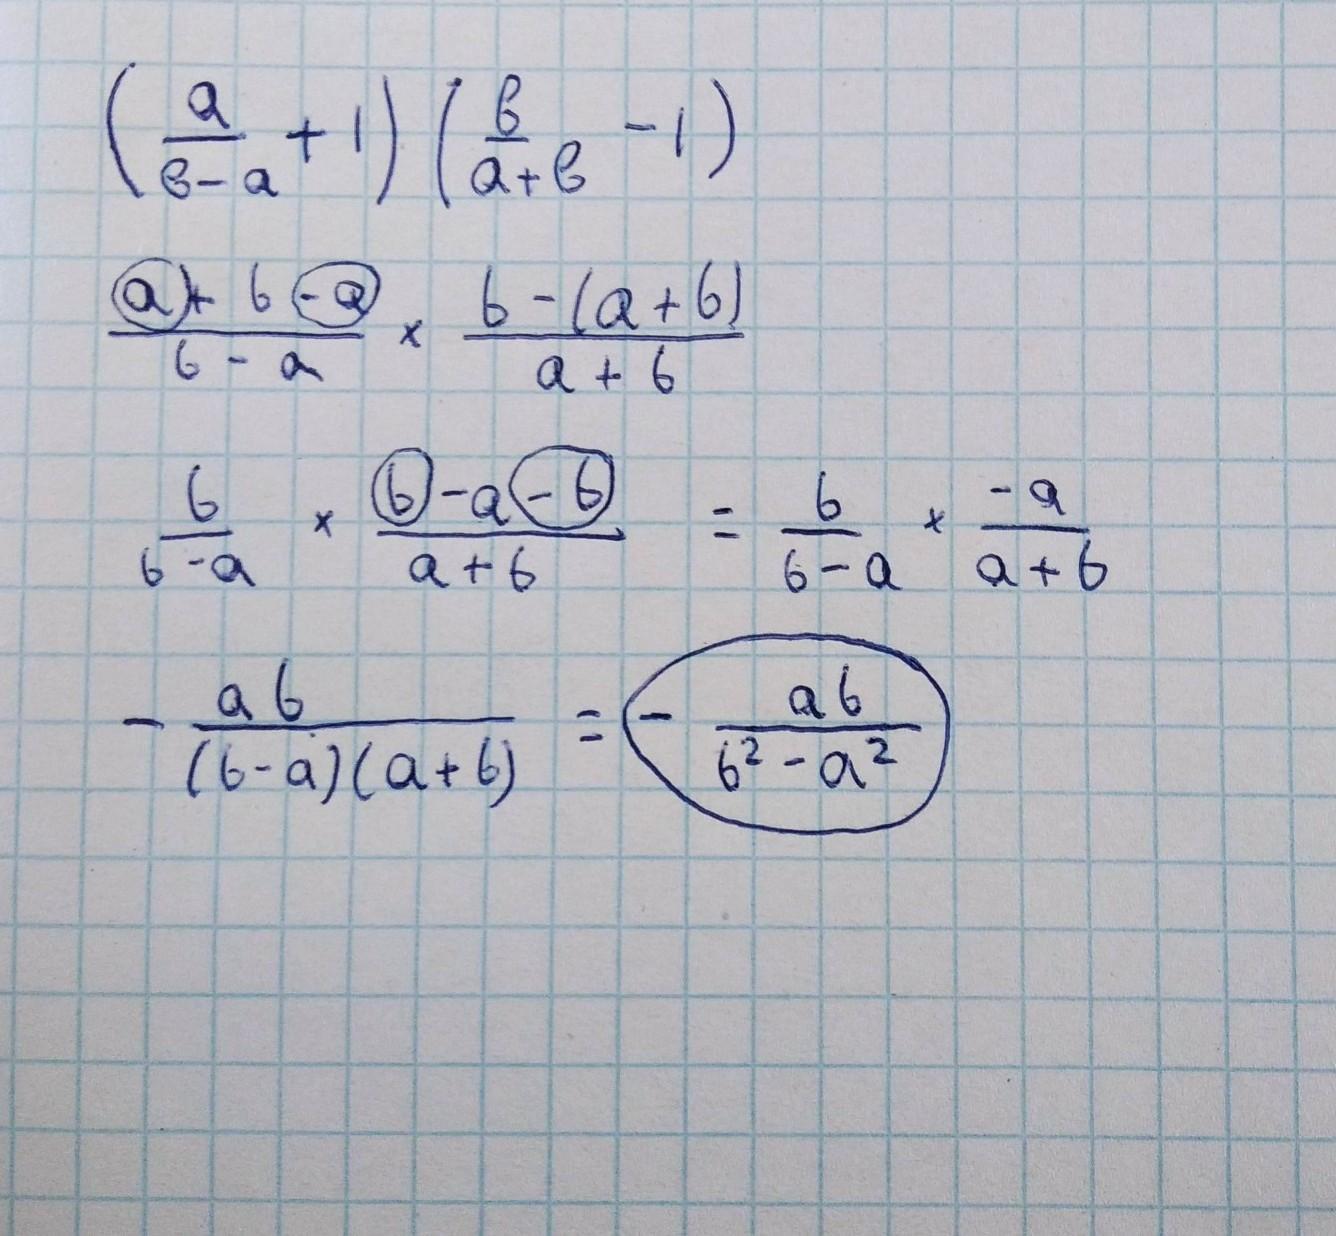 (a/(b-a) + 1) (b/(a+b) - 1)
(a + b - a)/(b - a) × (b - (a + b))/(a + b)
b/(b - a) × (b - a - b)/(a + b) = b/(b - a) × (-a)/(a + b)
- ab/((b-a)(a+b)) = - ab/(b² - a²)